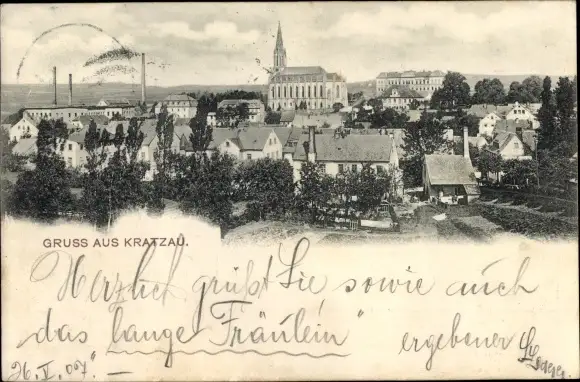 GRUSS AUS KRATZAU.
Herzlich grüßt Sie sowie auch
das "lange Fräulein" ergebener
26. V. 07."